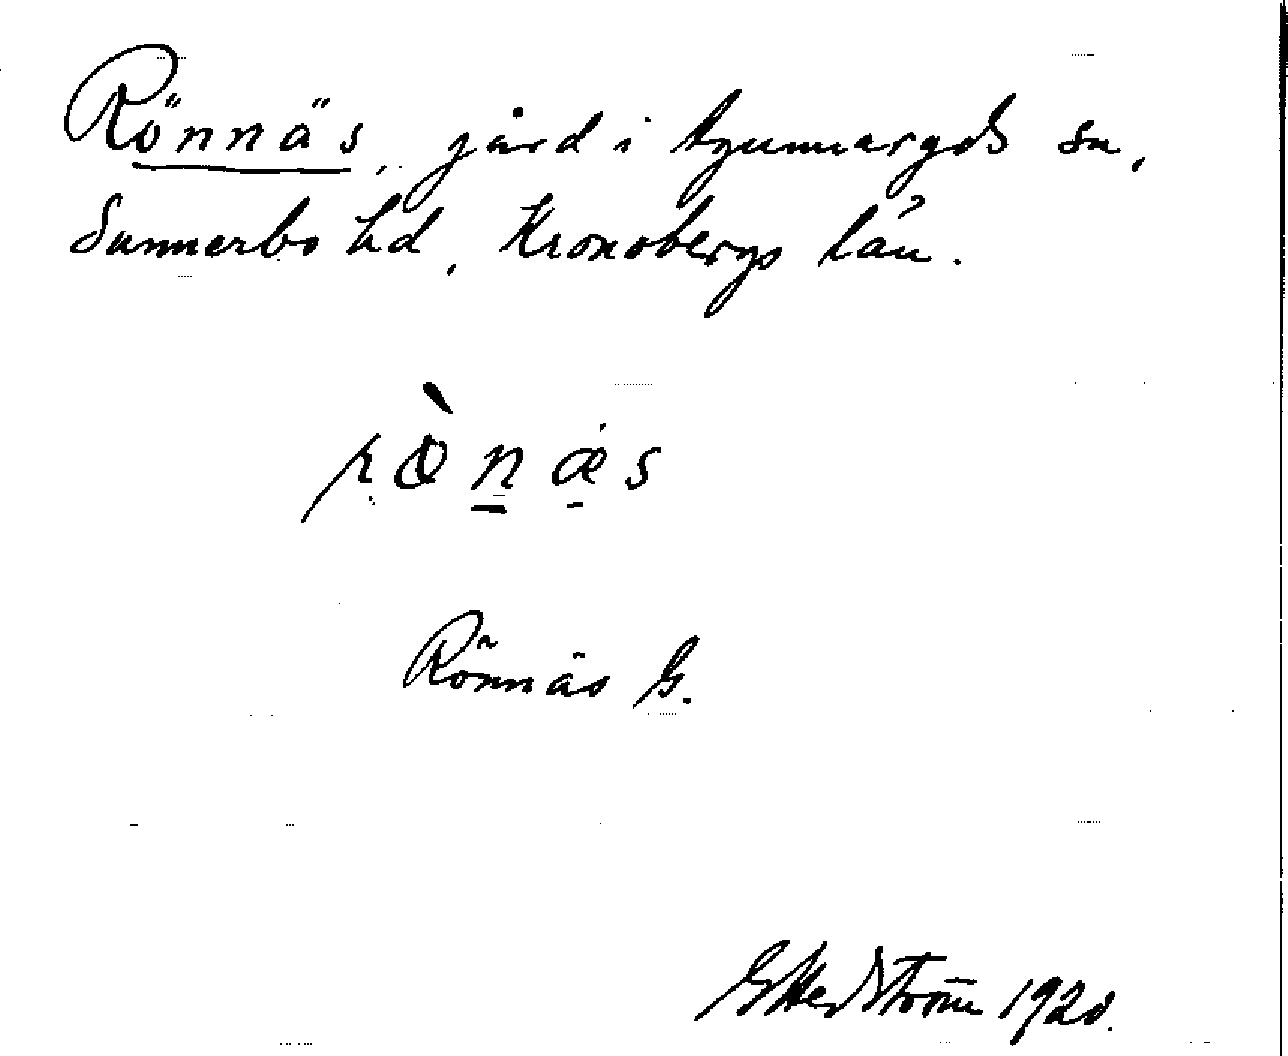 Rönnäs, gård i Agunnaryds sn,
Sunnerbo hd, Kronobergs län.
rò̀næs
Rönnäs G.
G Hedström 1920.